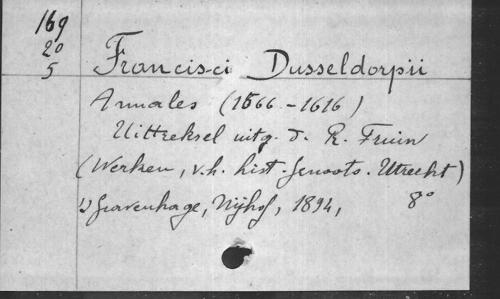 169
20
5
Francisci Dusseldorpii
Annales (1566-1616)
Uittreksel uitg. d. R. Fruin
(Werken, v.h. hist. Genoots. Utrecht)
's Gravenhage, Nijhof, 1894, 8°